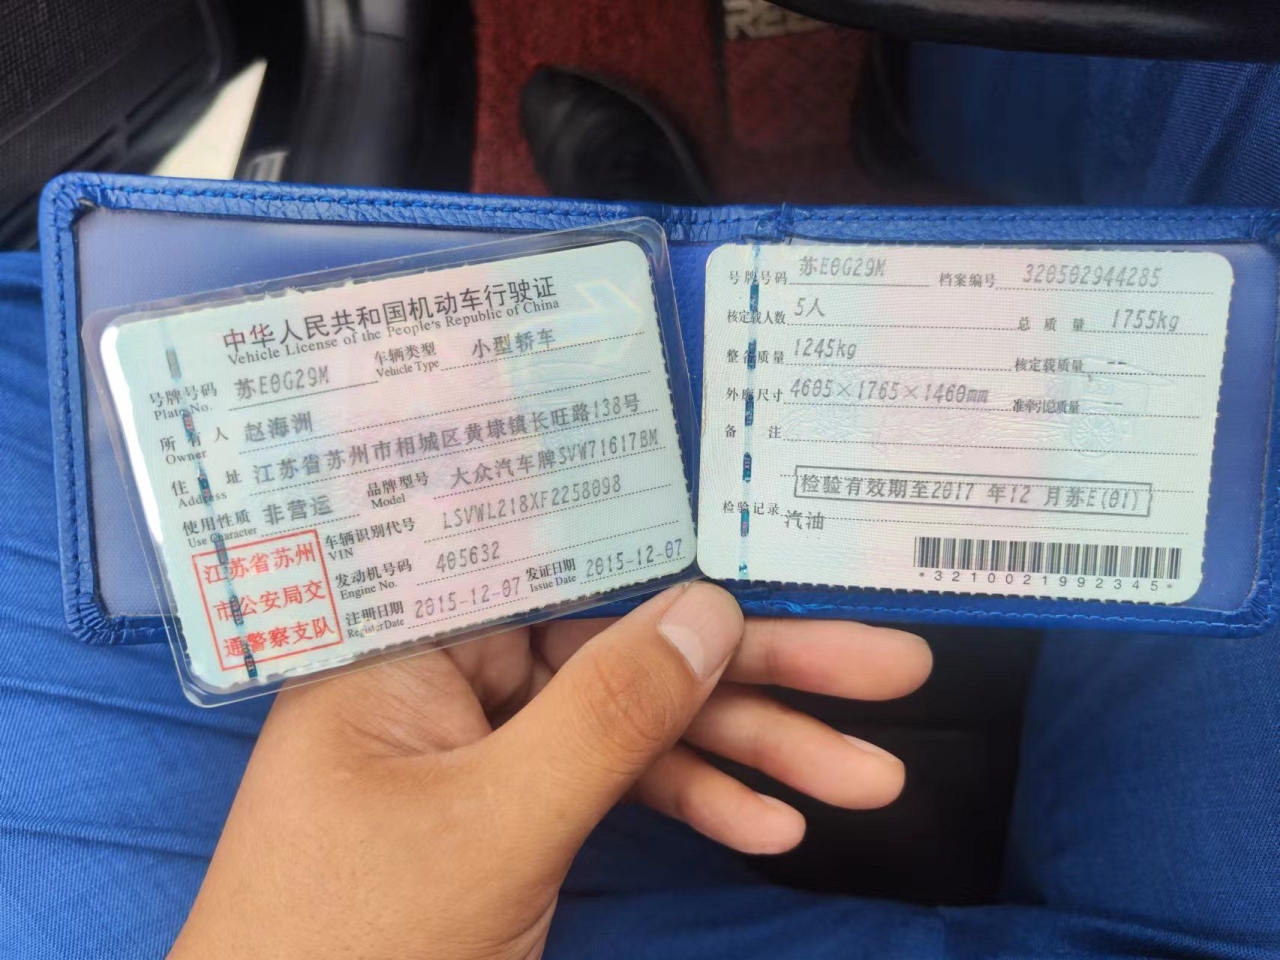 中华人民共和国机动车行驶证
Vehicle License of the People's Republic of China
号牌号码 苏E0G29M 车辆类型 小型轿车
Plate No. Vehicle Type
所有人 赵海洲
Owner
住址 江苏省苏州市相城区黄埭镇长旺路138号
Address
使用性质 非营运 品牌型号 大众汽车牌SVW71617BM
Use Character Model
车辆识别代号 LSVWL218XF2258098
VIN
发动机号码 405632
Engine No.
注册日期 2015-12-07 发证日期 2015-12-07
Register Date Issue Date
江苏省苏州
市公安局交
通警察支队
号牌号码 苏E0G29M 档案编号 320502944285
核定载人数 5人 总质量 1755kg
整备质量 1245kg 核定载质量 --
外廓尺寸 4605×1765×1460mm 准牵引总质量 --
备注
检验有效期至2017年12月苏E(01)
检验记录 汽油
*3210021992345*